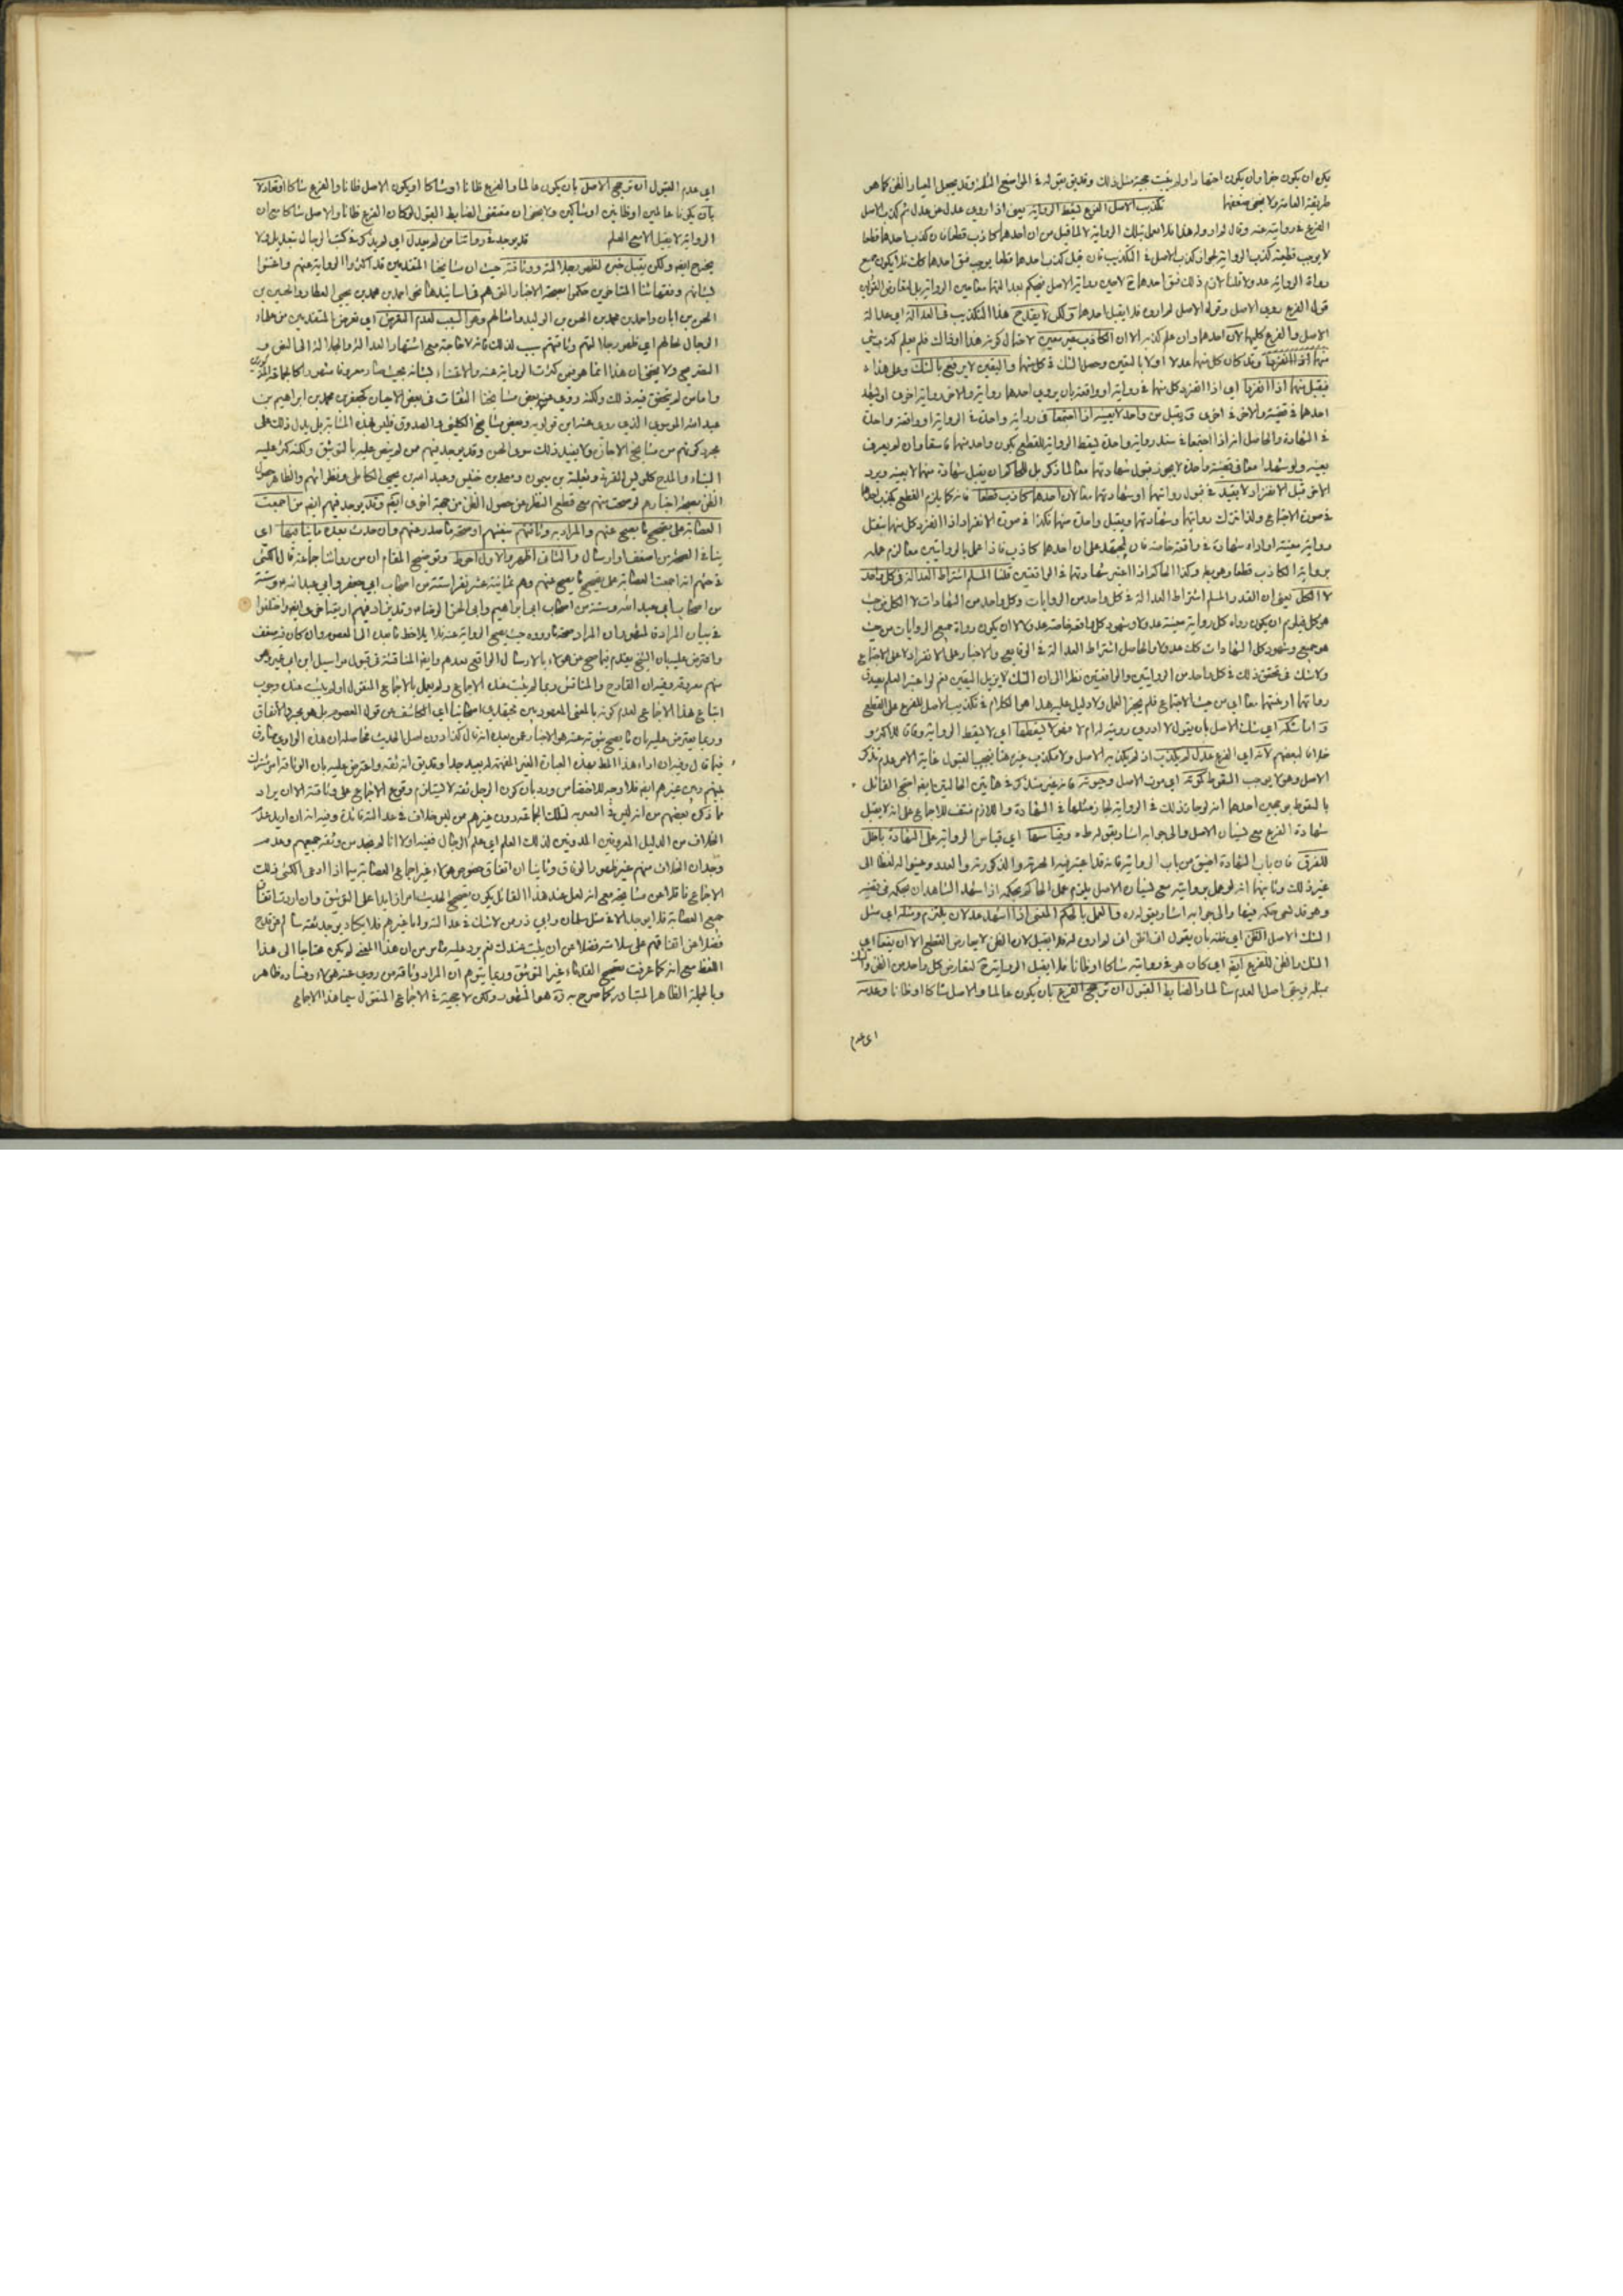 يكن ان يكون حقا وان يكون اجتهادا ولم يثبت حجية مثل ذلك وقد يق بقوله في المواضع وقد يجعل المعيار الظن كما هو
طريقة العامة ولا يخفى ضعفهما تكذيب الاصل الفرع يسقط الرواية يعني اذا روى عدل عن عدل ثم كذب الاصل
الفرع في روايته عنه وقال لم اروه هذا فلا يعمل بتلك الرواية لا لما قيل من ان احدهما كاذب قطعا فان كذب احدهما قطعا
لا يوجب قطعية كذب الرواية لجواز كذب الاصل في التكذيب فان قيل كذب احدهما قطعا يوجب فسق احدهما كك فلا يكون جميع
رواة الرواية عدولا قلنا لازم ذلك فسق احدهما لا معين رواية الاصل فيحكم بعدالتهما معا من الرواية بل لتعارض القولين
قول الفرع روى الاصل وقوله الاصل لم ارو فلا يقبل احدهما ولكن لا يقدح هذا التكذيب في العدالة اي عدالة
الاصل والفرع كليهما لان احدهما وان علم كذبه الا ان الكاذب غير معين لاحتمال كونه هذا او ذاك فلم يعلم كذب شيء
منهما وقد كان كل منهما عدلا اولا باليقين وحصل الشك في كل منهما واليقين لا يرتفع بالشك وعلى هذا
فيقبل منهما اذا انفردا اي اذا انفرد كل منهما في رواية او واقعة بان يروي احدهما رواية والاخر رواية اخرى او يشهد
احدهما في قضية والاخر في اخرى ولا يقبل من واحد لا بعينه اذا اجتمعا في رواية واحدة في الرواية او واقعة واحدة
في الشهادة والحاصل انه اذا اجتمعا في سند رواية واحدة يسقط الرواية للقطع بكون واحد منهما فاسقا وان لم يعرف
بعينه ولو شهدا معا في قضية واحدة لا يجوز قبول شهادتهما معا لما ذكر بل للحاكم ان يقبل شهادة منهما لا بعينه ويرد
الاخر قبل الانفراد لا يقيد في قبول روايتهما او شهادتهما معا لان احدهما كاذب قطعا فانه كما يلزم القطع بكذب احدهما
في صورة الاجتماع ولذا نترك روايتهما وشهادتهما ويقبل واحدة منهما فكذا في صورة الانفراد اذا انفرد كل منهما بنقل
رواية معينة او اداء شهادة في واقعة خاصة فان المجتهد علم ان احدهما كاذب فاذا عمل بالروايتين معا لزم عمله
برواية الكاذب قطعا وهو بط وكذا الحاكم اذا اعتبر شهادتهما في الواقعتين قلنا المسلم اشتراط العدالة في كل واحد
لا الكل يعني ان القدر المسلم اشتراط العدالة في كل واحد من الروايات وكل واحد من الشهادات لا الكل من حيث
هو كل فيلزم ان يكون رواة كل رواية معينة عدولا وشهود كل واقعة خاصة عدولا لا ان يكون رواة جميع الروايات من حيث
هو جميع وشهود كل الشهادات كك عدولا والحاصل اشتراط العدالة في الوقايع والاخبار على الانفراد لا على الاجتماع
ولا شك في تحقق ذلك في كل واحد من الروايتين والواقعتين نظرا الى ان الشك لا يزيل اليقين نعم لو اعتبر العلم بعدالة
رواتهما او عدلهما معا اي من حيث الاجتماع فلم يجز العمل ولا دليل عليه هذا هو الكلام في تكذيب الاصل للفرع على القطع
واما شكه اي شك الاصل بان يقول لا ادري رويته له ام لا فهو لا يسقطها اي لا يسقط الرواية وفاقا للاكثر و
خلافا لبعضهم لانه اي الفرع عدل لم يكذب اذ لم يكذبه الاصل ولا مكذب غيره هنا فيجب القبول غاية الامر عدم تذكر
الاصل وهو لا يوجب السقوط كموته اي موت الاصل وجنونه فانه غير متذكر في هاتين الحالتين ايضا احتج القائل
بالسقوط بوجهين احدهما انه لو جاز ذلك في الرواية لجاز مثلها في الشهادة واللازم منتف للاجماع على انه لا يقبل
شهادة الفرع مع نسيان الاصل والى جوابه اشار بقوله ط وقياسها اي قياس الرواية على الشهادة باطل
للفرق فان باب الشهادة اضيق من باب الرواية فانه قد اعتبر فيه الحرية والذكورة والعدد وعينوا له لفظا الى
غير ذلك وثانيهما انه لو عمل بروايته مع نسيان الاصل يلزم عمل الحاكم بحكمه اذا شهد الشاهدان بحكمه في قضية
وهو قد نسي حكمه فيها والى جوابه اشار بقوله ره والعمل بالحكم المنسي اذا شهد عدلان يلتزم ومثله اي مثل
الشك الاصل الظن اي ظنه بان يقول اني اظن اني لم اروه له فلا يقبل لان الظن لا يعارض القطع الا ان يتبعه اي
الشك والظن للفرع ايضا اي كان هو في روايته شاكا او ظانا فلا يقبل الرواية ح لتعارض كل واحد من الظن والشك
بمثله فيبقى اصل العدم سالما والضابط القبول ان ترجح الفرع بان يكون عالما والاصل شاكا او ظانا وعدمه
اي عدم
اي عدم القبول ان ترجح الاصل بان يكون عالما والفرع ظانا او شاكا او يكون الاصل ظانا والفرع شاكا او تعادلا
بان يكونا عالمين او ظانين او شاكين ولا يخفى ان مقتضى الضابط القبول لو كان الفرع ظانا والاصل شاكا مع ان
الرواية لا يقبل الا مع العلم قد يوجد في رواتنا من لم يعدل اي لم يذكر في كتب الرجال بتعديل ولا
بجرح ايضا ولكن يقبل خبره لظهور جلالته ووثاقته حيث ان مشايخنا المتقدمين قد اكثروا الرواية عنهم واعتنوا
بشانهم وفقهائنا المتاخرين حكموا بصحة الاخبار التي هم في اسانيدها نحو احمد بن محمد بن يحيى العطار والحسين بن
الحسن بن ابان واحمد بن محمد بن الحسن بن الوليد وامثالهم وهو السبب لعدم التعرض اي تعرض المتقدمين من علماء
الرجال لحالهم اي ظهور جلالتهم ووثاقتهم سبب لذلك فانه لا حاجة مع اشتهار العدالة والجلالة الى النص و
التصريح ولا يخفى ان هذا انما هو فيمن كثرت الرواية عنه والاعتناء بشانه بحيث صار معروفا مشهورا كالجماعة
واما من لم يتحقق فيه ذلك ولكنه روى عنه بعض مشايخنا الثقات في بعض الاحيان كجعفر بن محمد بن ابراهيم بن
عبد الله الموسوي الذي روى عنه ابن قولويه وبعض مشايخ الكليني والصدوق فليس بهذه المثابة بل يدل ذلك على
مجرد كونهم من مشايخ الاجازة ولا يفيد ذلك سوى الحسن وقد يوجد فيهم من لم ينص عليه بالتوثيق ولكنه كثر عليه
الثناء والمدح ككونه من القراء وثعلبة بن ميمون وعبد الله بن يحيى الكاهلي ونظرائهم والظاهر حصول
الظن بصحة اخبارهم لو صحت منهم مع قطع النظر عن حصول الظن من جهة اخرى ايضا وقد يوجد فيهم ايضا من اجمعت
العصابة على تصحيح ما يصح عنهم والمراد به وثاقتهم بعينهم او صحة ما صدر عنهم وان حدث بعده ما ينافيها اي
ينافي الصحة من ضعف او ارسال والثاني اظهر والاول احوط وتوضيح المقام ان من رواتنا جماعة قال الكشي
في حقهم انه اجمعت العصابة على تصحيح ما يصح عنهم وهم ثمانية عشر نفرا ستة من اصحاب ابي جعفر وابي عبد الله وستة
من اصحاب ابي عبد الله وستة من اصحاب ابي ابراهيم وابي الحسن الرضا وقد يزاد فيهم اربعة اخرى ايضا واختلفوا
في بيان المراد فالمشهور ان المراد صحة ما رووه حيث يصح الرواية عنه فلا يلاحظ ما بعده الى المعصوم وان كان فيه ضعف
واعترض عليه بان الشيخ يقدم فيما صح عن هؤلاء بالارسال الواقع بعدهم وايضا المناقشة في قبول مراسيل ابن ابي عمير وهو
منهم معروفة وفيه ان القادح والمناقش ربما لم يثبت عنده الاجماع ولم يعمل بالاجماع المنقول او لم يثبت عنده وجوب
اتباع هذا الاجماع لعدم كونه بالمعنى المعهود بين اصحابنا اي الكاشف عن قول المعصوم بل هو مجرد الاتفاق
وربما يعترض عليه بان ما يصح ثبوته عنه هو الاخبار عمن بعده انه قال كذا دون اصل الحديث فحاصله ان هذا الراوي صادق
فيما قال وفيه ان اداء هذا المطلب بهذه العبارة الغير المفهمة له بعيد جدا وقد يق انه ثقة واعترض عليه بان الوثاقة امر مشترك
بينهم وبين غيرهم ايضا فلا وجه للاختصاص ورد بان كون الرجل ثقة لا يستلزم وقوع الاجماع على وثاقته الا ان يراد
ما ذكره بعضهم من انه ليس في التعبير بتلك الجماعة دون غيرهم من ليس خلاف في عدالته فائدة وفيه انه ان اريد عدم
الخلاف من الدليل المعروفين المدونين لذلك العلم اي علم الرجال ففيه اولا انا لم نجد من وثقه جميعهم وعدم
وجدان الخلاف منهم غير ظهور الوفاق وثانيا ان اتفاق خصوص هؤلاء غير اجماع العصابة سيما اذا ادعى الكشي ذلك
الاجماع ناقلا عن مشايخه مع انه لعل عند هذا القائل يكون تصحيح الحديث امرا زايدا على التوثيق وان اردت اتفاق
جميع العصابة فلم يوجد الا في مثل سلمان وابي ذر ممن لا شك في عدالته واما غيرهم فلا يكاد يوجد ثقة سالم عن قدح
فضلا عن اتفاقهم على سلامته فضلا عن ان يثبت عندك نعم يرد عليه ما مر من ان هذا المعنى لم يكن محتاجا الى هذا
اللفظ مع انه كما عرفت تصحيح القدماء غير التوثيق وربما يتوهم ان المراد وثاقة من روى عنه هؤلاء وفساده ظاهر
وبالجملة الظاهر المتبادر كما صرح به هو المشهور ولكن لا حجية في الاجماع المنقول سيما هذا الاجماع